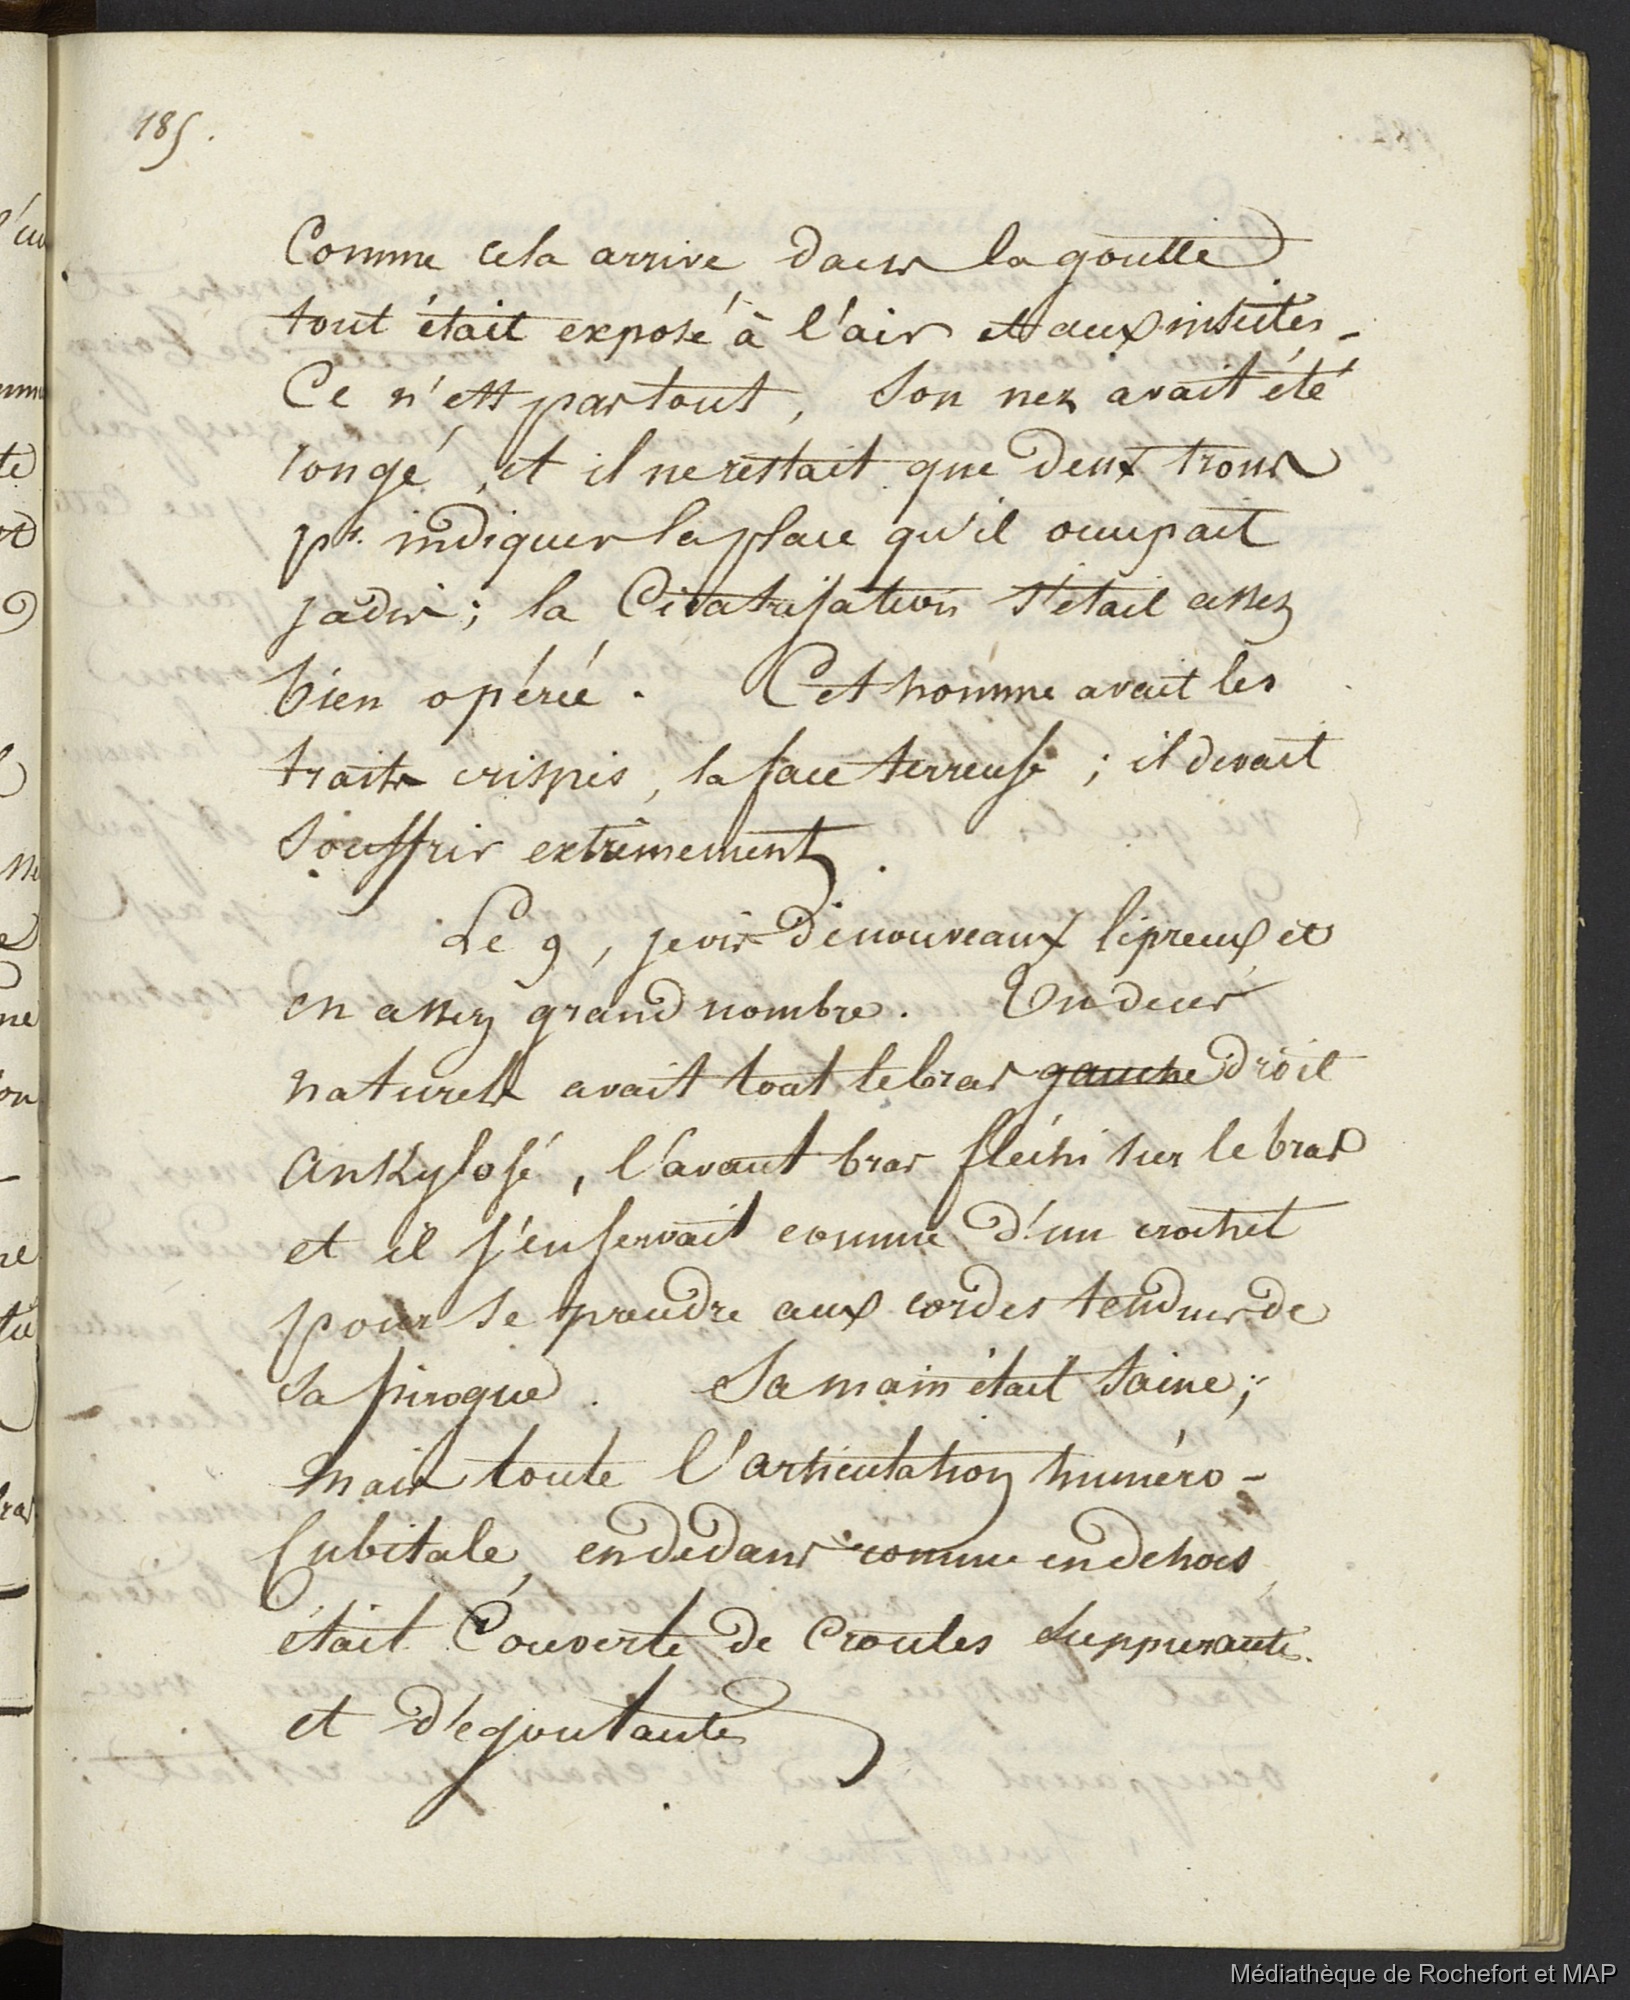 185.
Comme cela arrive dans la goutte
tout était exposé à l'air et aux insectes -
Ce n'est pas tout, Son nez avait été
rongé, et il ne restait que deux trous
pr. indiquer la place qu'il occupait
jadis; la Cicatrisation s'était assez
bien opérée. Cet homme avait les
traits crispés, la face terreuse; il devait
Souffrir extrêmement.
Le 9, je vis de nouveaux lépreux et
en assez grand nombre. Un de ces
naturels avait tout le bras gauche droit
ankylosé, l'avant bras fléchi sur le bras
et il s'en servait comme d'un crochet
pour se prendre aux cordes tendues de
sa pirogue. Sa main était saine;
mais toute l'articulation huméro-
Cubitale, en dedans comme en dehors
était Couverte de Croutes suppurantes.
et dégoutantes
Médiathèque de Rochefort et MAP